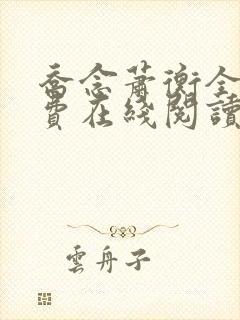 喬念蕭衡全
費在綫閱讀
雲舟子